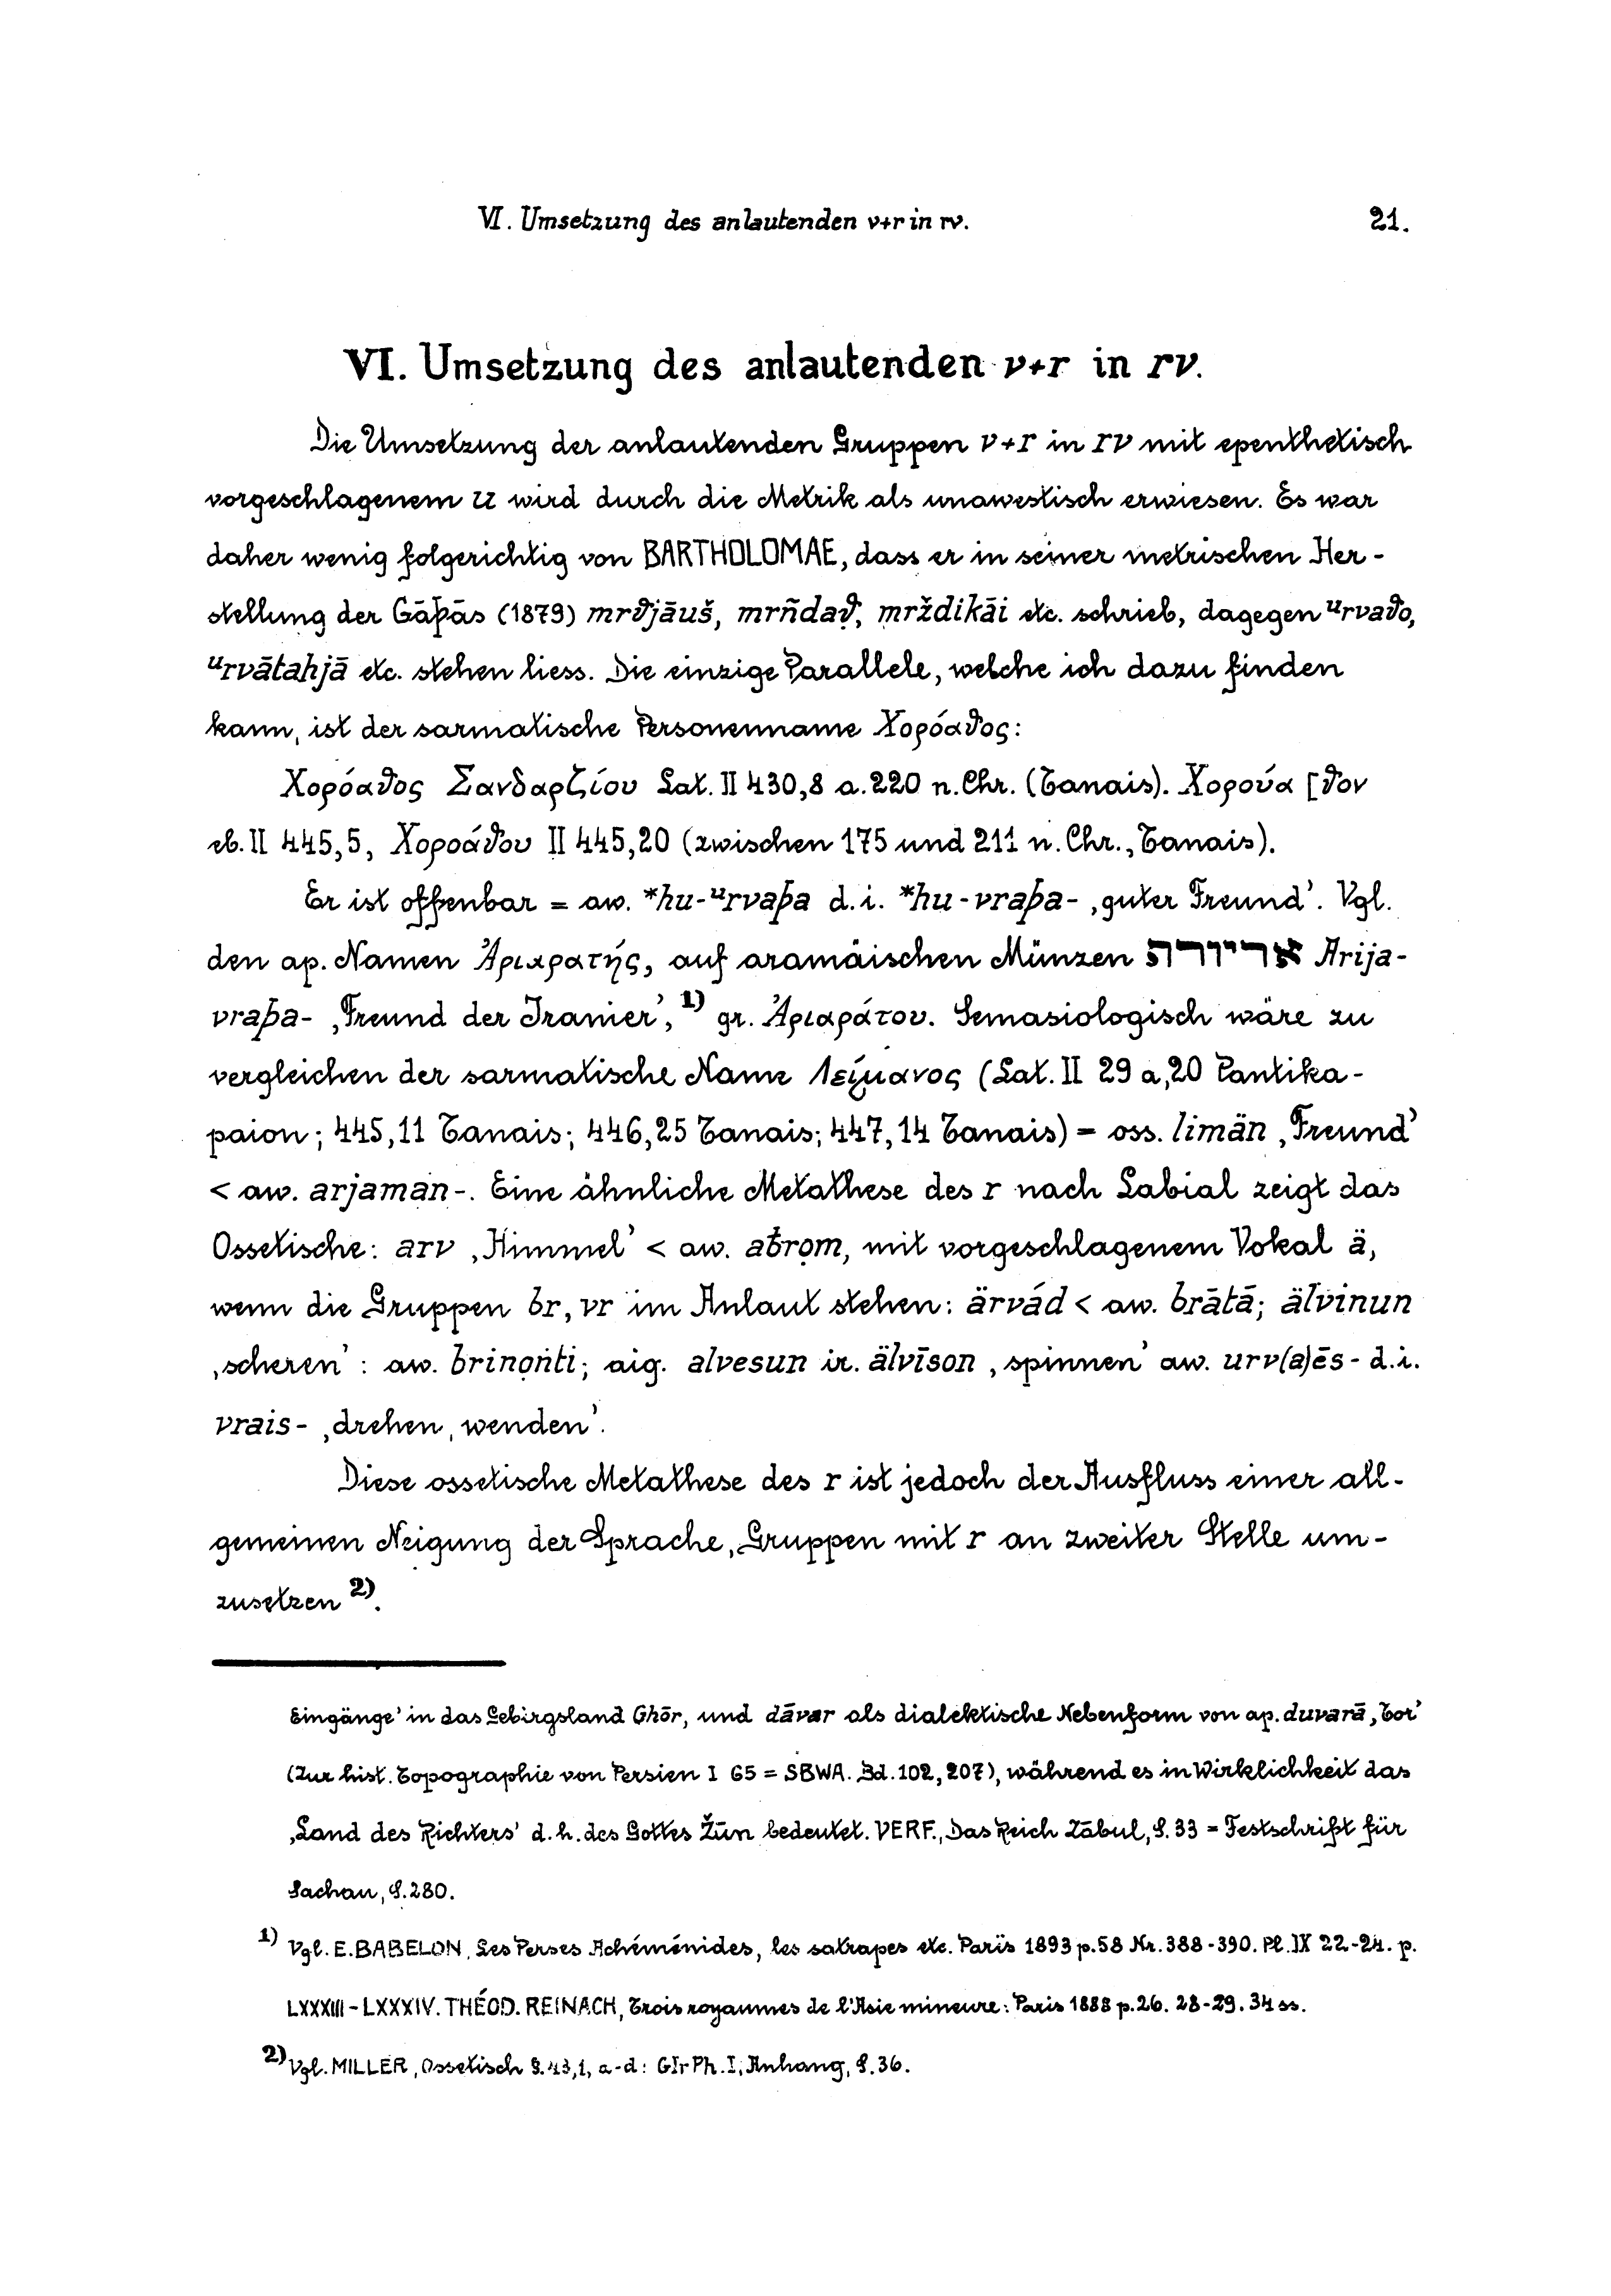 VI. Umsetzung des anlautenden v+r in rv. 21.
VI. Umsetzung des anlautenden v+r in rv.
Die Umsetzung der anlautenden Gruppen v+r in rv mit epenthetisch
vorgeschlagenem u wird durch die Metrik als unawestisch erwiesen. Es war
daher wenig folgerichtig von BARTHOLOMAE, dass er in seiner metrischen Her-
stellung der Gāþās (1879) mrϑjāuš, mrñdaϑ̣, mrždikāi etc. schrieb, dagegen ᵘrvaϑo,
ᵘrvātahjā etc. stehen liess. Die einzige Parallele, welche ich dazu finden
kann, ist der sarmatische Personenname Χορόαϑος:
Χορόαϑος Σανδαρζίου Lat. II 430,8 a. 220 n. Chr. (Tanais). Χορούα [ϑον
eb. II 445,5, Χοροάϑου II 445,20 (zwischen 175 und 211 n. Chr., Tanais).
Er ist offenbar = aw. *hu-ᵘrvaþa d.i. *hu-vraþa- ‚guter Freund’. Vgl.
den ap. Namen Ἀριαρατής, auf aramäischen Münzen אריורה Arija-
vraþa- ‚Freund der Iranier’,¹⁾ gr. Ἀριαράτου. Semasiologisch wäre zu
vergleichen der sarmatische Name Λείμανος (Lat. II 29 a,20 Pantika-
paion; 445,11 Tanais; 446,25 Tanais; 447,14 Tanais) = oss. limän ‚Freund’
< aw. arjaman-. Eine ähnliche Metathese des r nach Labial zeigt das
Ossetische: arv ‚Himmel’ < aw. aƀrọm, mit vorgeschlagenem Vokal ä,
wenn die Gruppen br, vr im Anlaut stehen: ärvád < aw. brātā; älvinun
‚scheren’ : aw. brinọṅti; dig. alvesun ir. älvīson ‚spinnen’ aw. urv(a)ēs- d.i.
vrais- ‚drehen, wenden’.
Diese ossetische Metathese des r ist jedoch der Ausfluss einer all-
gemeinen Neigung der Sprache, Gruppen mit r an zweiter Stelle um-
zusetzen ²⁾.
Eingänge’ in das Gebirgsland Ghōr, und dāvar als dialektische Nebenform von ap. duvarā ‚Tor’
(Zur hist. Topographie von Persien I 65 = SBWA. Bd. 102, 207), während es in Wirklichkeit das
‚Land des Richters’ d.h. des Gottes Žūn bedeutet. VERF., Das Reich Zābul, S. 33 = Festschrift für
Sachau, S. 280.
1) Vgl. E. BABELON, Les Perses Achéménides, les satrapes etc. Paris 1893 p. 58 Nr. 388-390. Pl. IX 22-24. p.
LXXXIII-LXXXIV. THÉOD. REINACH, Trois royaumes de l'Asie mineure: Paris 1888 p. 26. 28-29. 34 ss.
2) Vgl. MILLER, Ossetisch §. 43,1, a-d: GIrPh. I, Anhang, S. 36.